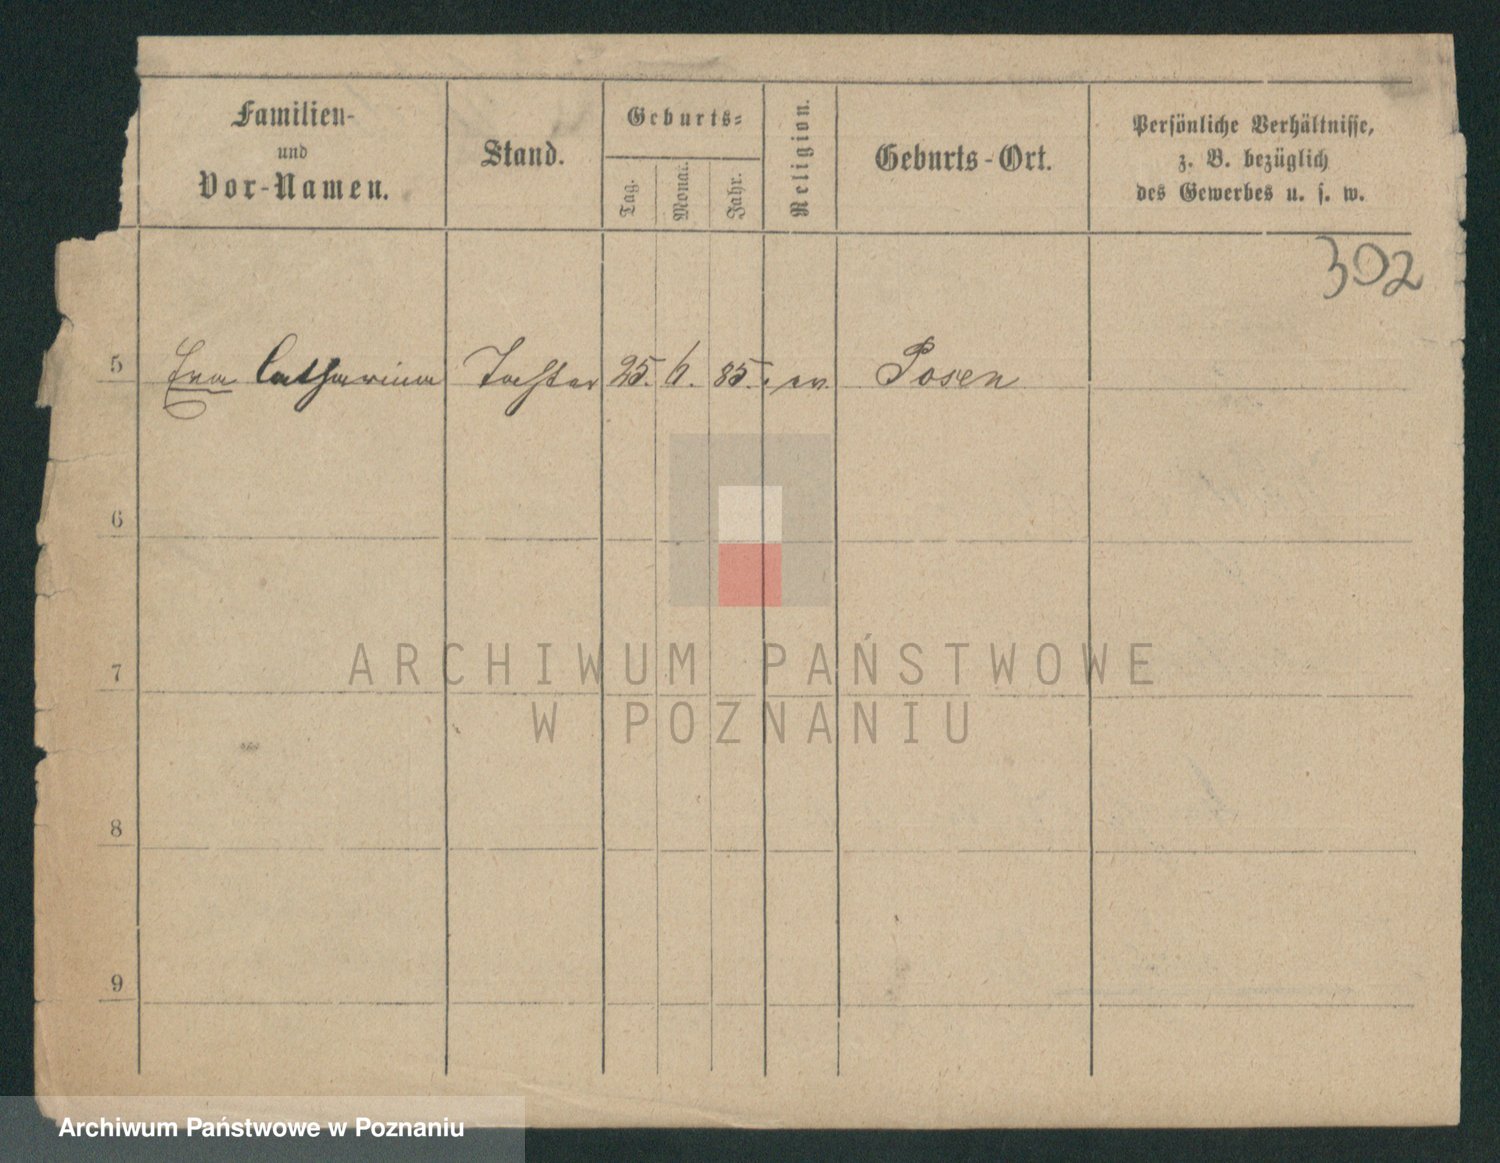 Familien-
und
Vor-Namen.
Stand.
Geburts-
Tag.
Monat.
Jahr.
Religion.
Geburts-Ort.
Persönliche Verhältnisse,
z. B. bezüglich
des Gewerbes u. s. w.
302
5 Eva Catharina Tochter 25. 6. 85. ev. Posen
6
7
8
9
ARCHIWUM PAŃSTWOWE
W POZNANIU
Archiwum Państwowe w Poznaniu